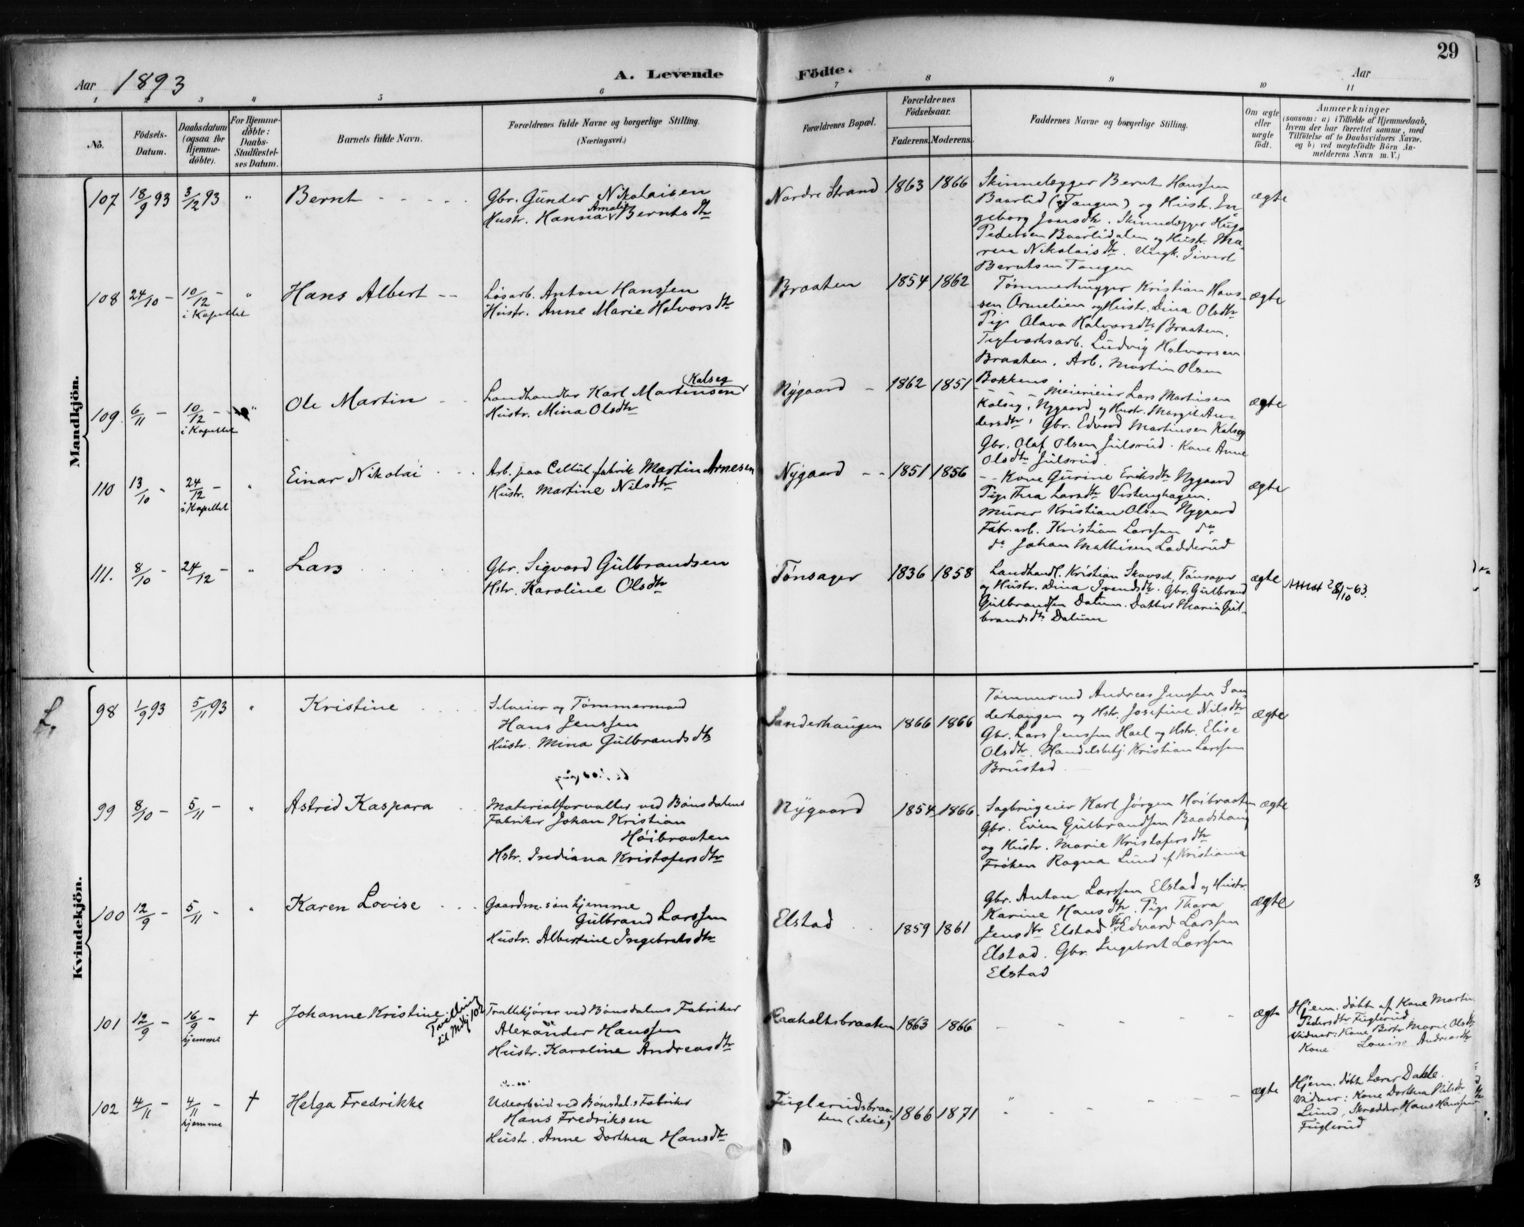 29
Aar 1893
A. Levende Fødte.
Aar
1 2 3 4 5 6 7 8 9 10 11
No.
Fødsels-Datum.
Daabsdatum (ogsaa for Hjemme-døbte).
For Hjemme-døbte: Daabs-Stadfæstel-ses Datum.
Barnets fulde Navn.
Forældrenes fulde Navne og borgerlige Stilling. (Næringsvei.)
Forældrenes Bopæl.
Forældrenes Fødselsaar.
Faderens. Moderens.
Faddernes Navne og borgerlige Stilling.
Om ægte eller uægte født.
Anmærkninger
(saasom: a) i Tilfælde af Hjemmedaab, hvem der har forrettet samme, med Tilføielse af to Daabsvidners Navne, og b) ved uægtefødte Børn An-melderens Navn m. V.)
Mandkjön.
107 18/9 93 3/12 93 " Bernt
Gbr. Gunder Nikolaisen
Hustr. Hanna Amalie Berntsdtr
Nordre Strand 1863 1866
Skinnelægger Bernt Hanssen
Baarlid (Tangen) og Hustr. In-
geborg Jonsdtr. Skinnelægger Hans
Pedersen Baarlidalen og Hustr. Ma-
ren Nikolaisdtr. Ungk. Sivert
Berntsen Tangen
ægte
108 24/10 - 10/12 - i Kapellet " Hans Albert
Løsarb. Anton Hanssen
Hustr. Anne Marie Halvorsdtr
Braaten 1854 1862
Tømmerhugger Kristian Hans-
sen Ormelien og Hustr. Dina Olsdtr
Pige Olava Halvorsdtr Braaten.
Teglværksarb. Ludvig Halvorsen
Braaten. Arb. Martin Olsen
Bakkens
ægte
109 6/11 - 10/12 - i Kapellet " Ole Martin
Landhandler Karl Martinsen Kalseg
Hustr. Mina Olsdtr
Nygaard - 1862 1851
Meierieier Lars Martinsen
Kalseg, Nygaard og Hustr. Margit An-
dersdtr, Gbr. Edvard Martinsen Kalseg
Gbr. Olaf Olsen Julsrud. Kone Anne
Olsdtr Julsrud.
ægte
110 13/10 - 24/12 - i Kapellet " Einar Nikolai
Arb. paa Cellul.fabrik Martin Arnesen
Hustr. Martine Nilsdtr
Nygaard - - 1851 1856
- - Kone Gurine Eriksdtr Nygaard
Pige Thea Larsdtr
Murer Kristian Olsen Nygaard
Fabr.arb. Kristian Larssen do
do Johan Mathisen Ladderud
ægte
111. 8/10 - 24/12 - " Lars
Gbr. Sigvard Gulbrandsen
Hstr. Karoline Olsdtr
Tønsager 1836 1858
Landhandl. Kristian Skavset, Tønsager
og Hustr. Dina Svendsdtr. Gbr. Gulbrand
Gulbrandsen Datum. Datter Maria Gul-
brandsdtr Datum
ægte
Attest 28/10-63.
Kvindekjön.
98 1/9 93 5/11 93 " Kristine
Selveier og Tømmermand
Hans Jenssen
Hustr. Mina Gulbrandsdtr
Sanderhaugen 1866 1866
Tømmermd Andreas Jenssen San-
derhaugen og Hstr. Josefine Nilsdtr
Gbr. Lars Jenssen Hael og Hstr. Elise
Olsdtr. Handelsbetj. Kristian Larssen
Brustad
ægte
99 8/10 - 5/11 - " Astrid Kaspara
Materialforvalter ved Bønsdalens
Fabriker Johan Kristian
Høibraaten
Hstr. Indiana Kristofersdtr
Nygaard 1854 1866
Sagbrugeier Karl Jørgen Høibraaten
Gbr. Even Gulbrandsen Baadshaug
og Hustr. Marie Kristofersdtr
Frøken Ragna Lund af Kristiania
ægte
100 12/9 - 5/11 - " Karen Lovise
Gaardm.søn hjemme
Gulbrand Larssen
Hustr. Albertine Ingebretsdtr
Elstad 1859 1861
Gbr. Anton Larssen Elstad og Hustr.
Karine Hansdtr. Pige Thora
Jensdtr Elstad Edvard Larssen
Elstad. Gbr. Ingebret Larssen
Elstad
ægte
101 12/9 - 16/9 - hjemme † Johanne Kristine
Tvilling til Mkj. 102
Trallekjører ved Bønsdalens Fabriker
Alexander Hanssen
Hustr. Karoline Andreasdtr
Raaholtsbraaten 1863 1866
ægte
Hjem.døbt af Kone Martin
Pedersdtr Fuglerud.
Vidner: Kone Berte Marie Olsdtr
Kone Lovise Andreasdtr
102 4/11 - 4/11 - hjemme † Helga Fredrikke
Udearbeid. ved Bønsdal.s Fabriker
Hans Fredriksen
Hustr. Anne Dorthea Hansdtr
Fuglerudsbraa-
ten (eie) 1866 1871
ægte
Hjem.døbt Lærer Dahle.
Vidner: Kone Dorthea Nilsdtr
Lund, Skrædder Hans Hanssen
Fuglerud